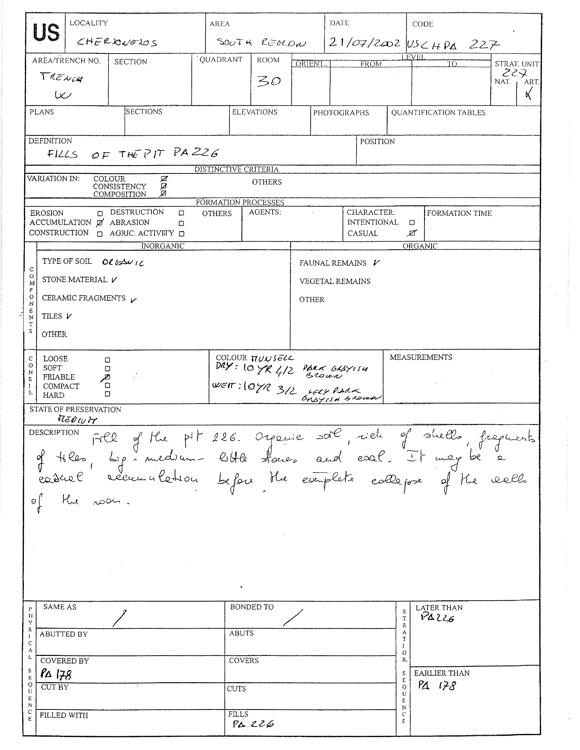 US
LOCALITY
CHERSONESOS
AREA
SOUTH REGION
DATE
21/07/2002
CODE
USCHPA 227
AREA/TRENCH NO.
TRENCH
W
SECTION
QUADRANT
ROOM
30
LEVEL
ORIENT. FROM TO
STRAT. UNIT
227
NAT. ART.
PLANS
SECTIONS
ELEVATIONS
PHOTOGRAPHS
QUANTIFICATION TABLES
DEFINITION
FILLS OF THE PIT PA226
POSITION
DISTINCTIVE CRITERIA
VARIATION IN: COLOUR
CONSISTENCY
COMPOSITION
OTHERS
FORMATION PROCESSES
EROSION DESTRUCTION
ACCUMULATION ABRASION
CONSTRUCTION AGRIC. ACTIVITY
OTHERS
AGENTS:
CHARACTER:
INTENTIONAL
CASUAL
FORMATION TIME
COMPONENTS
INORGANIC
TYPE OF SOIL ORGANIC
STONE MATERIAL ✓
CERAMIC FRAGMENTS ✓
TILES ✓
OTHER
ORGANIC
FAUNAL REMAINS ✓
VEGETAL REMAINS
OTHER
CONSIS.
LOOSE
SOFT
FRIABLE
COMPACT
HARD
COLOUR MUNSELL
DRY: 10 YR 4/2 DARK GRAYISH
BROWN
WETT: 10YR 3/2 VERY DARK
GRAYISH BROWN
MEASUREMENTS
STATE OF PRESERVATION
MEDIUM
DESCRIPTION
Fill of the pit 226. Organic soil, rich of shells, fragments
of tiles, big-medium-little stones and coal. It may be a
casual accumulation before the complete collapse of the walls
of the room.
PHYSICAL SEQUENCE
SAME AS /
BONDED TO /
ABUTTED BY
ABUTS
COVERED BY
PA 178
COVERS
CUT BY
CUTS
FILLED WITH
FILLS
PA 226
STRATIGR. SEQUENCE
LATER THAN
PA226
EARLIER THAN
PA 178